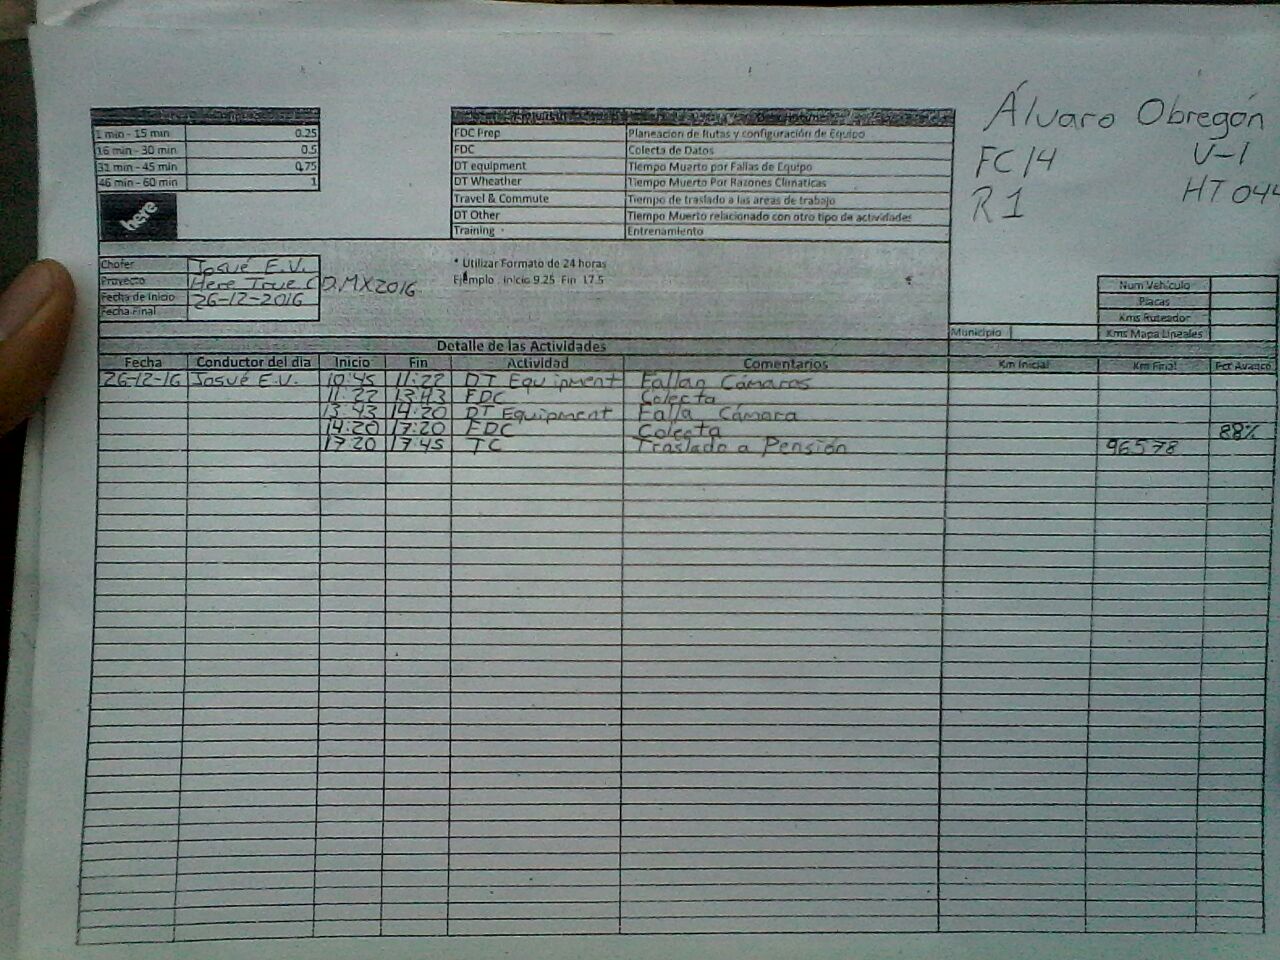 1 min - 15 min 0.25
16 min - 30 min 0.5
31 min - 45 min 0.75
46 min - 60 min 1
here
FDC Prep Planeacion de Rutas y configuración de Equipo
FDC Colecta de Datos
DT equipment Tiempo Muerto por Fallas de Equipo
DT Wheather Tiempo Muerto Por Razones Climaticas
Travel & Commute Tiempo de traslado a las areas de trabajo
DT Other Tiempo Muerto relacionado con otro tipo de actividades
Training Entrenamiento
Álvaro Obregón
FC 14 V-1
R1 HT 044
Chofer Josué E.V.
Proyecto Here True CD.MX2016
Fecha de Inicio 26-12-2016
Fecha Final
* Utilizar Formato de 24 horas
Ejemplo Inicio 9.25 Fin 17.5
Num Vehiculo
Placas
Kms Ruteador
Municipio Kms Mapa Lineales
Detalle de las Actividades
Fecha Conductor del dia Inicio Fin Actividad Comentarios Km Inicial Km Final Por Avance
26-12-16 Josué E.V. 10:45 11:22 DT Equipment Fallan Cámaras
11:22 13:43 FDC Colecta
13:43 14:20 DT Equipment Falla Cámara
14:20 17:20 FDC Colecta 88%
17:20 17:45 TC Traslado a Pensión 96578